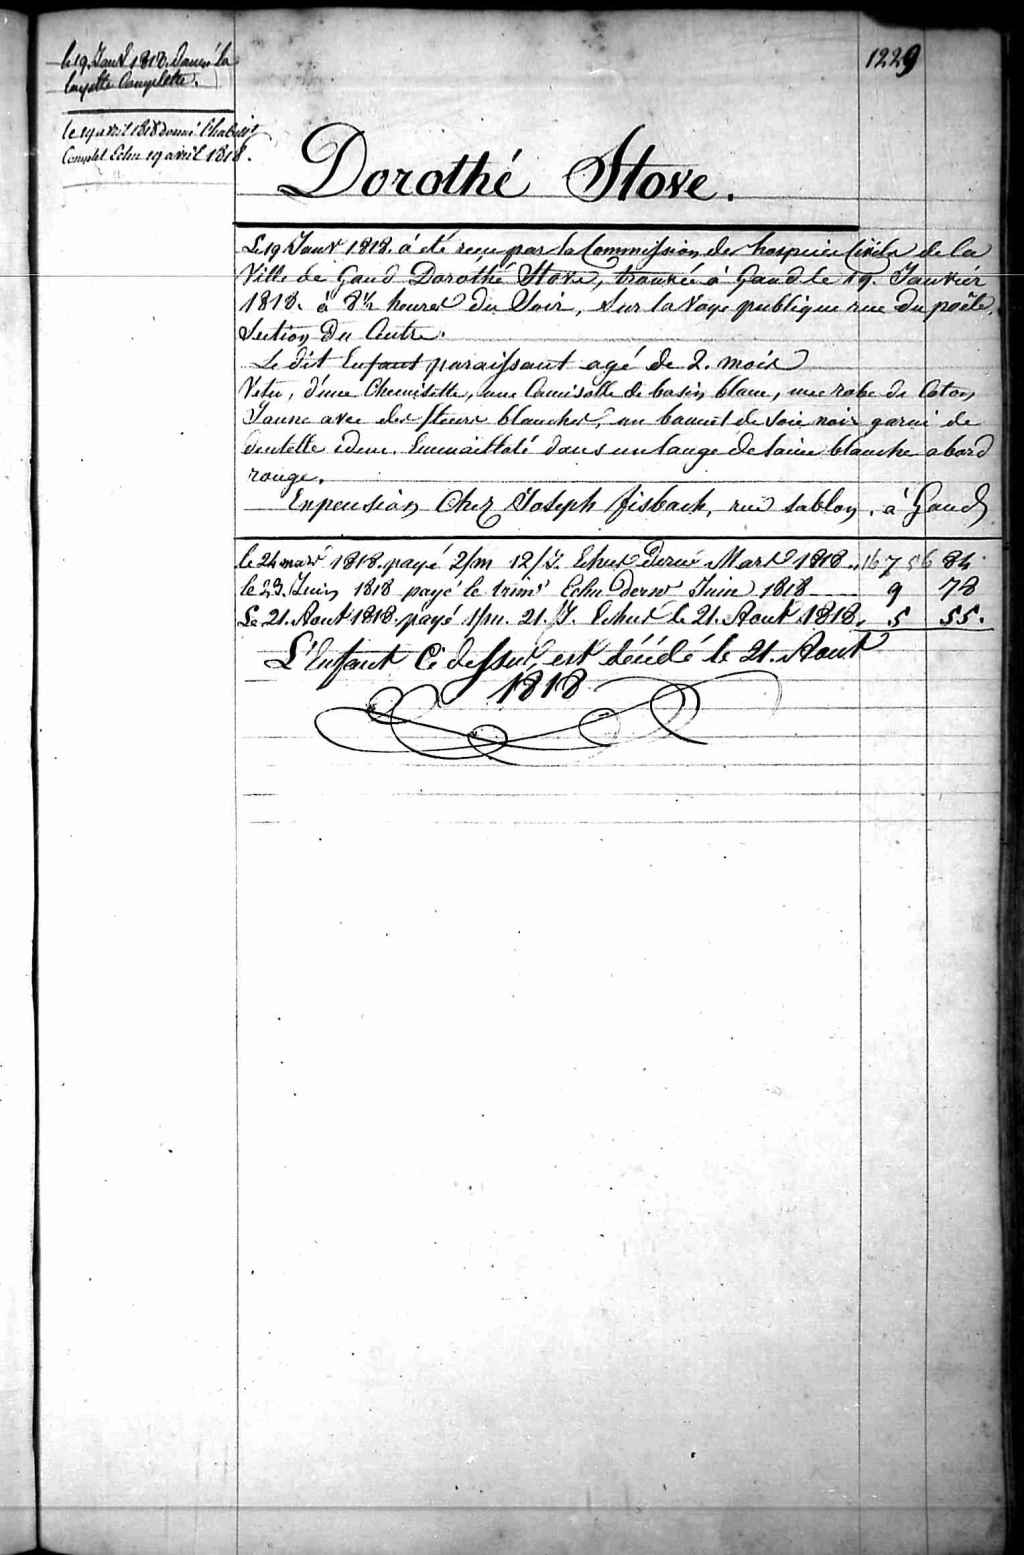 le 19. Janv. 1818. Donné la
layette Complette.
le 19 avril 1818 donné l'habill.t
Complet Echu 19 avril 1818.
1229
Dorothé Stove.
Le 19 Janv. 1818. à été reçu par la Commission des hospices Civils de la
Ville de Gand, Dorothé Stove, trouvée à Gand le 19. Janvier
1818. à 8½ heures du Soir, sur la Voye publique rue du poële,
Section du Centre.
Le dit Enfant paraissant agé de 2. mois
Vetu, d'une Chemisette, une Camisolle de basin blanc, une robe de Coton
Jaune avec des fleurs blanches, un bonnet de Soie noir garni de
dentelle idem. Emmaillotté dans un lange de laine blanche a bord
rouge.
En pension Chez Joseph fisback, rue sablon, à Gand
le 24 mars 1818. payé 2/m 12/J. Echus Dernr Mars 1818. 7 84.
le 23. Juin 1818 payé le trims Echu dernr Juin 1818 9 78
Le 21. Aout 1818. payé 1/m. 21. J. Echus le 21. Aout 1818. 5 55.
L'Enfant Ci dessus, est décédé le 21. Aout
1818